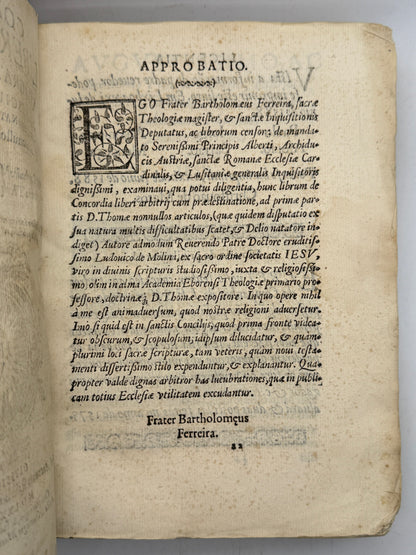 APPROBATIO.
EGO Frater Bartholomæus Ferreira, sacræ
Theologiæ magister, & sanctæ Inquisitionis
Deputatus, ac librorum censor; de manda-
to Serenissimi Principis Alberti, Archidu-
cis Austriæ, sanctæ Romanæ Ecclesiæ Car-
dinalis, & Lusitaniæ generalis Inquisitoris
dignissimi, examinaui, qua potui diligentia, hunc librum de
Concordia liberi arbitrij cum prædestinatione, ad primæ par-
tis D. Thomæ nonnullos articulos, (quæ quidem disputatio ex
sua natura multis difficultatibus scatet, & Delio natatore in-
diget) Autore admodum Reuerendo Patre Doctore eruditis-
simo Ludouico de Molina, ex sacro ordine societatis IESV,
viro in diuinis scripturis studiosissimo, iuxta & religiosissi-
mo, olim in alma Academia Eborensi Theologiæ primario pro-
fessore, doctrinæ D. Thomæ expositore. In quo opere nihil
à me est animaduersum, quod nostræ religioni aduersetur.
Imo si quid est in sanctis Concilijs, quod prima fronte videa-
tur obscurum, & scopulosum; id ipsum dilucidatur, & quàm-
plurimi loci sacræ scripturæ, tam veteris, quàm noui testa-
menti dissertissimo stilo expenduntur, & explanantur. Qua-
propter valde dignas arbitror has lucubrationes, quæ in publi-
cam totius Ecclesiæ vtilitatem excudantur.
Frater Bartholomęus
Ferreira.